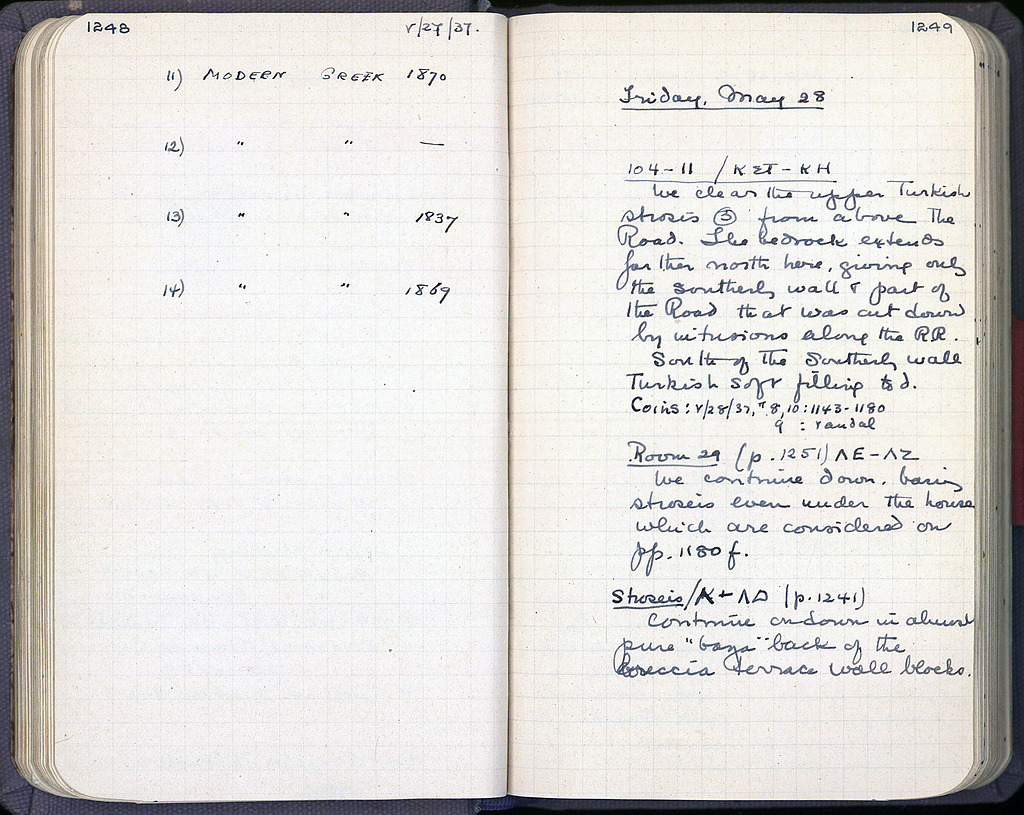 1248
V/27/37.
11) MODERN GREEK 1870
12) " " —
13) " " 1837
14) " " 1869
1249
Friday, May 28
104-11 / KΣT - KH
We clear the upper Turkish
strosis ③ from above the
Road. The bedrock extends
farther north here, giving only
the southerly wall & part of
the Road that was cut down
by intrusions along the RR.
South of the Southerly wall
Turkish soft filling to d.
Coins: V/28/37, #8, 10: 1143-1180
9 : vandal
Room 29 (p. 1251) ΛE - ΛZ
We continue down,
stroseis even under the house
which are considered on
pp. 1180 f.
Stroseis / K + ΛΔ (p. 1241)
Continue on down in almost
pure "baya" back of the
breccia terrace wall blocks.